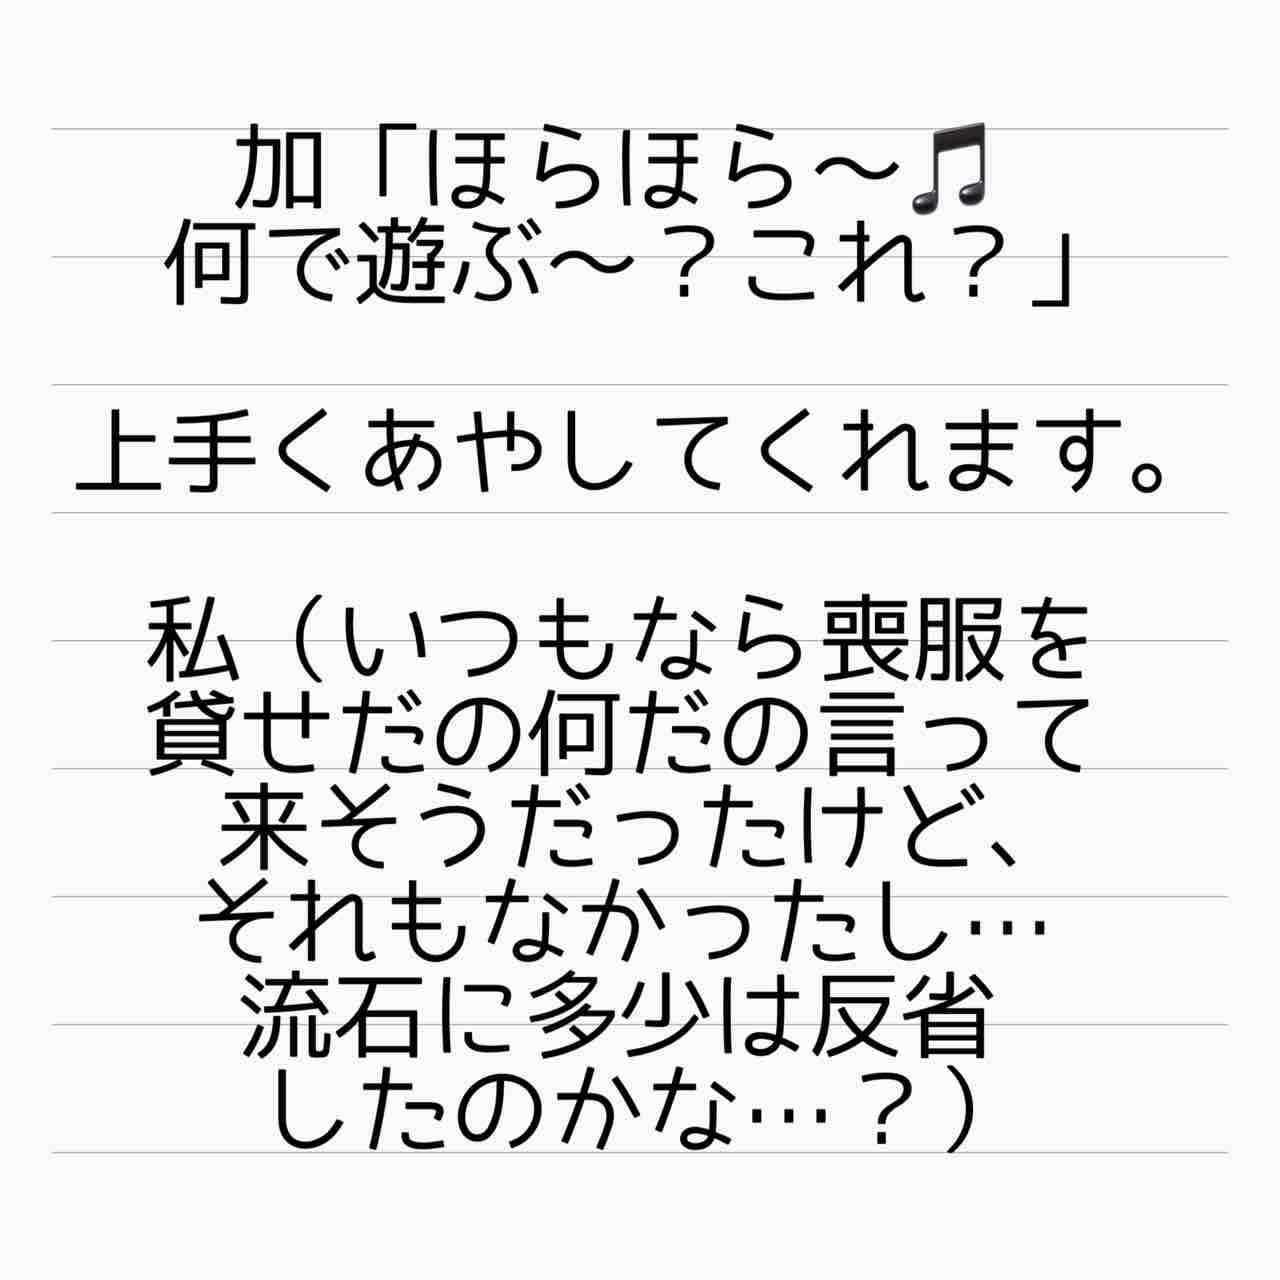 加「ほらほら〜🎵
何で遊ぶ〜？これ？」
上手くあやしてくれます。
私（いつもなら喪服を
貸せだの何だの言って
来そうだったけど、
それもなかったし…
流石に多少は反省
したのかな…？）